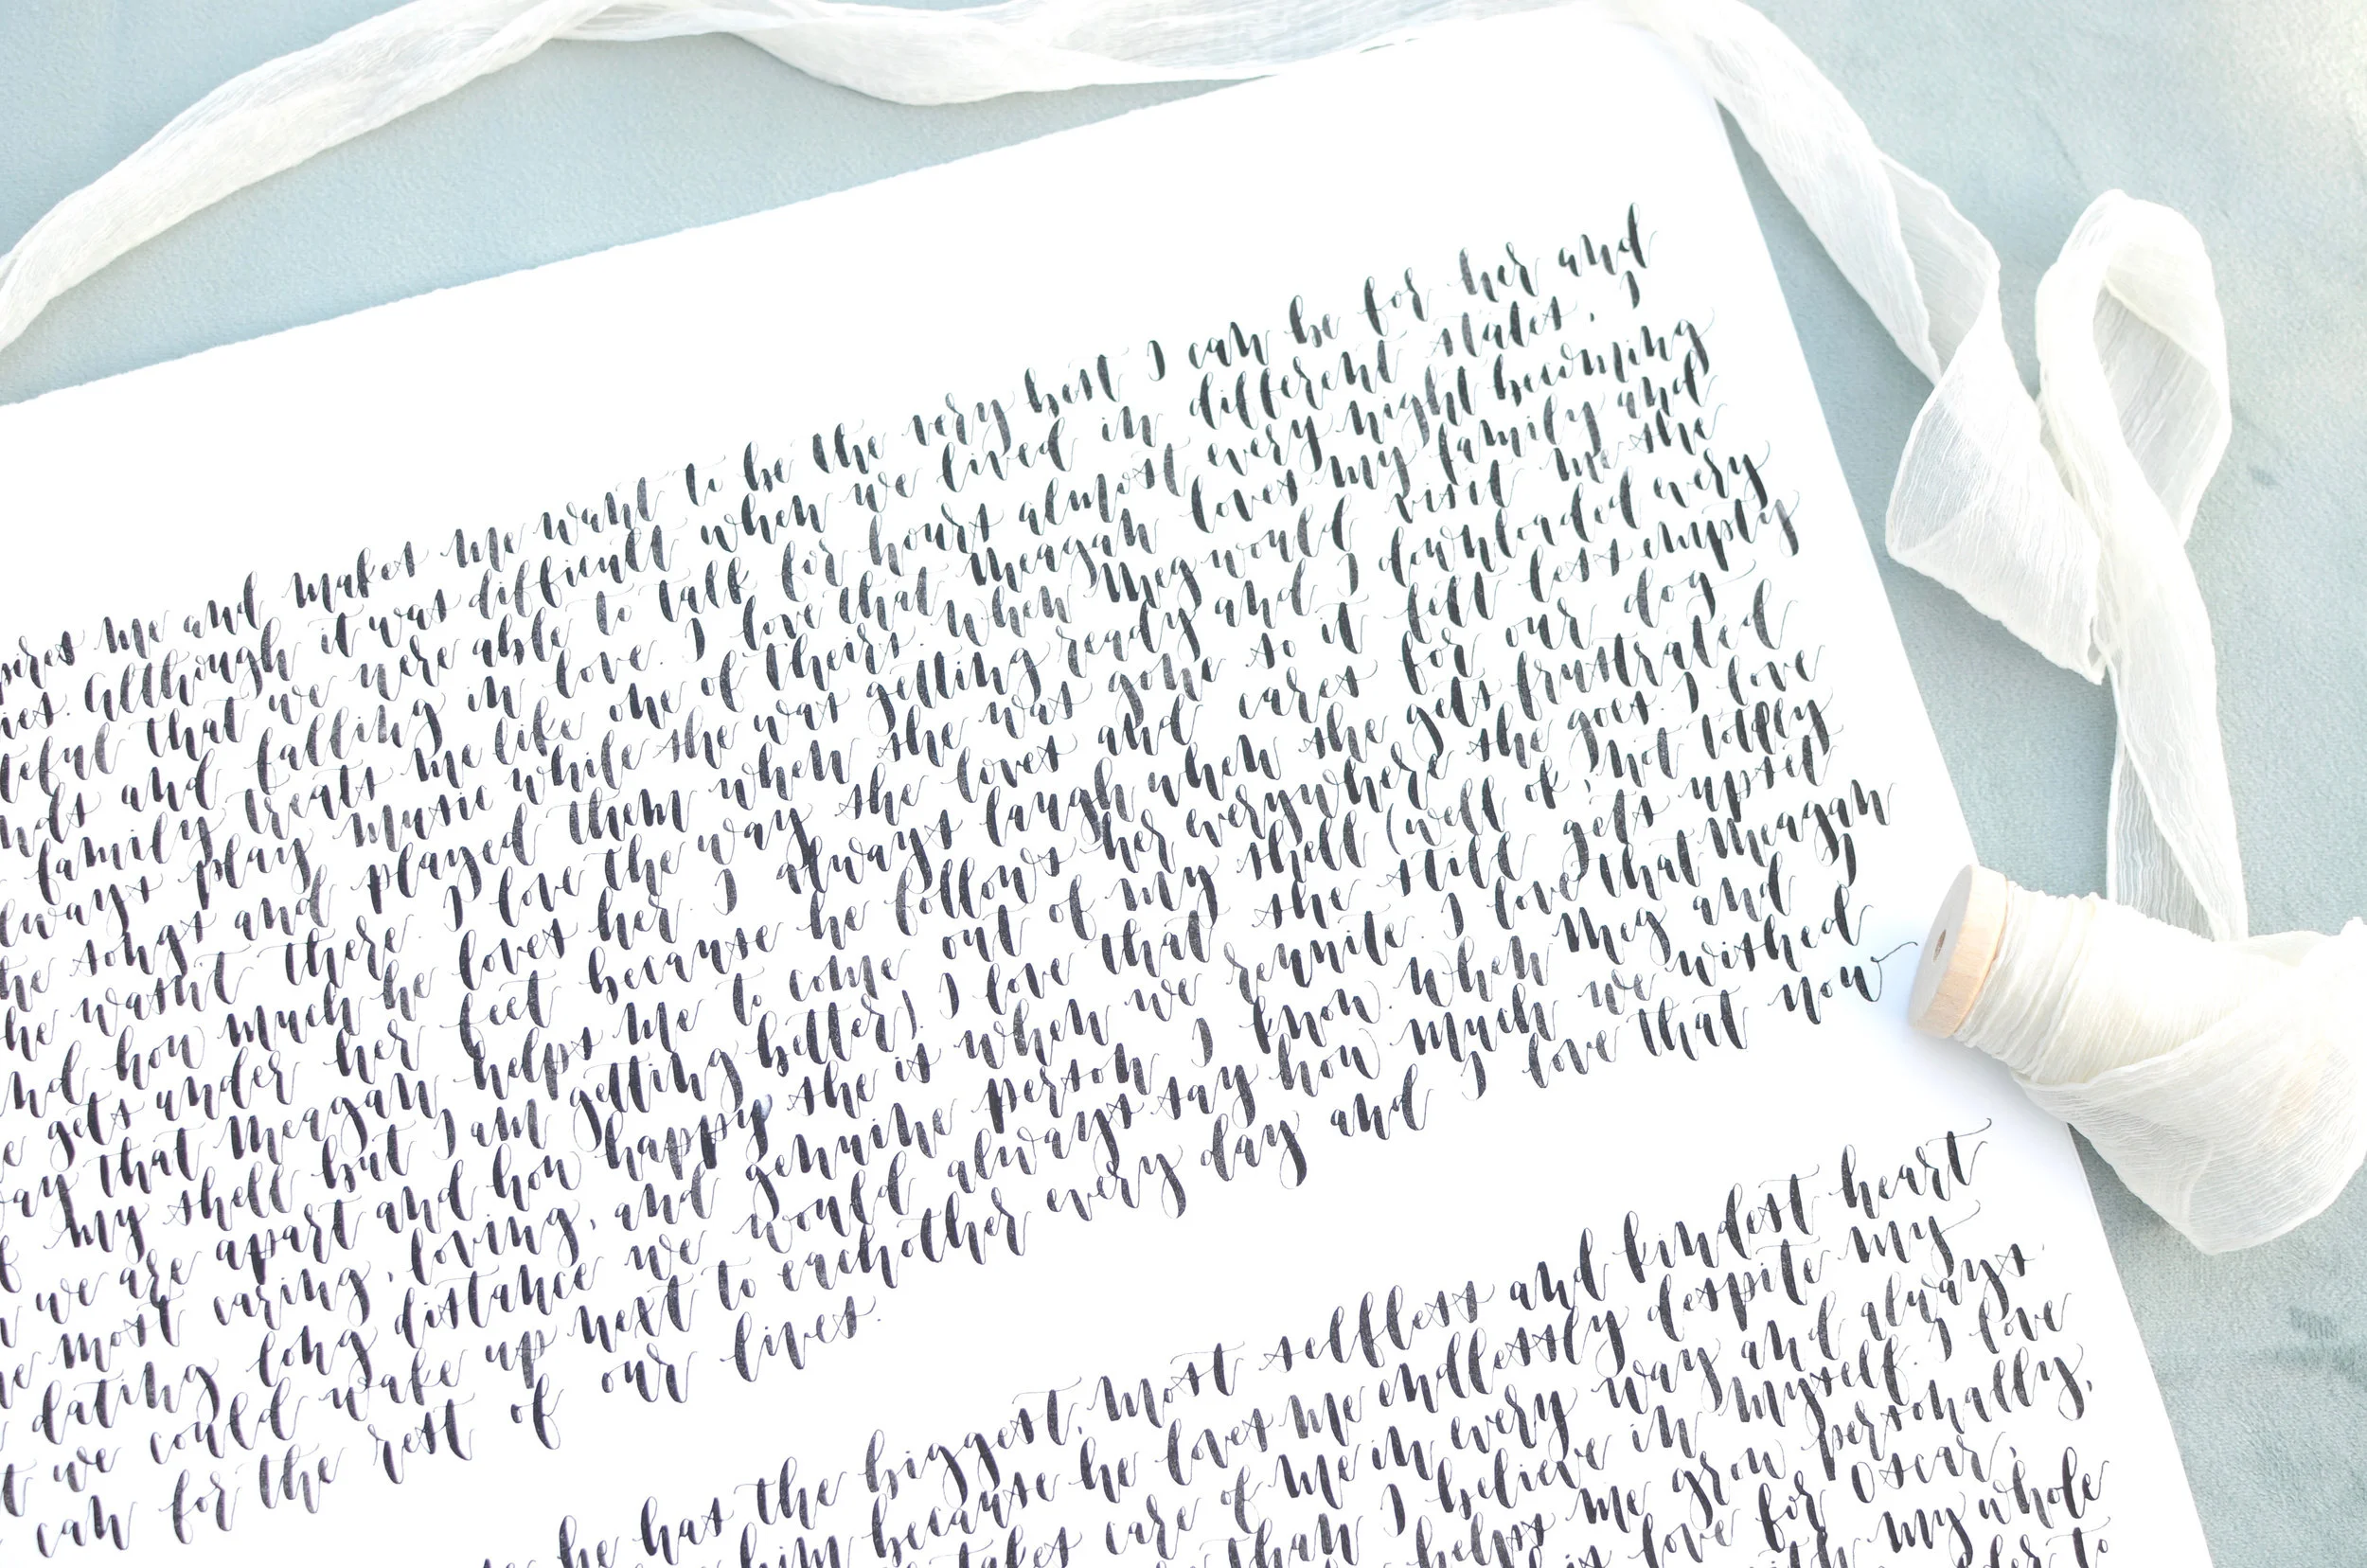 pires me and makes me want to be the very best I can be for her and
ies. Although it was difficult when we lived in different states, I
teful that we were able to talk for hours almost every night becoming
nds and falling in love. I love that Meagan loves my family and
family treats me like one of theirs. When Meg would visit me she
lways play music while she was getting ready and I downloaded every
he songs and played them when she was gone so it felt less empty
he wasn't there. I love the way she loves and cares for our dog
nd how much he loves her. I always laugh when she gets frustrated
e gets under her feet because he follows her everywhere she goes. I love
ay that Meagan helps me to come out of my shell (well ok, not totally
f my shell but I am getting better). I love that she still gets upset
n we are apart and how happy she is when we reunite. I love that Meagan
he most caring, loving, and genuine person I know. When Meg and I
dating long distance we would always say how much we wished
t we could wake up next to eachother every day and I love that now
can for the rest of our lives.
he has the biggest, most selfless and kindest heart
him because he loves me endlessly despite my
takes care of me in every way and always
than I believe in myself. I love
helps me grow personally,
is love for Oscar,
with my whole
der to